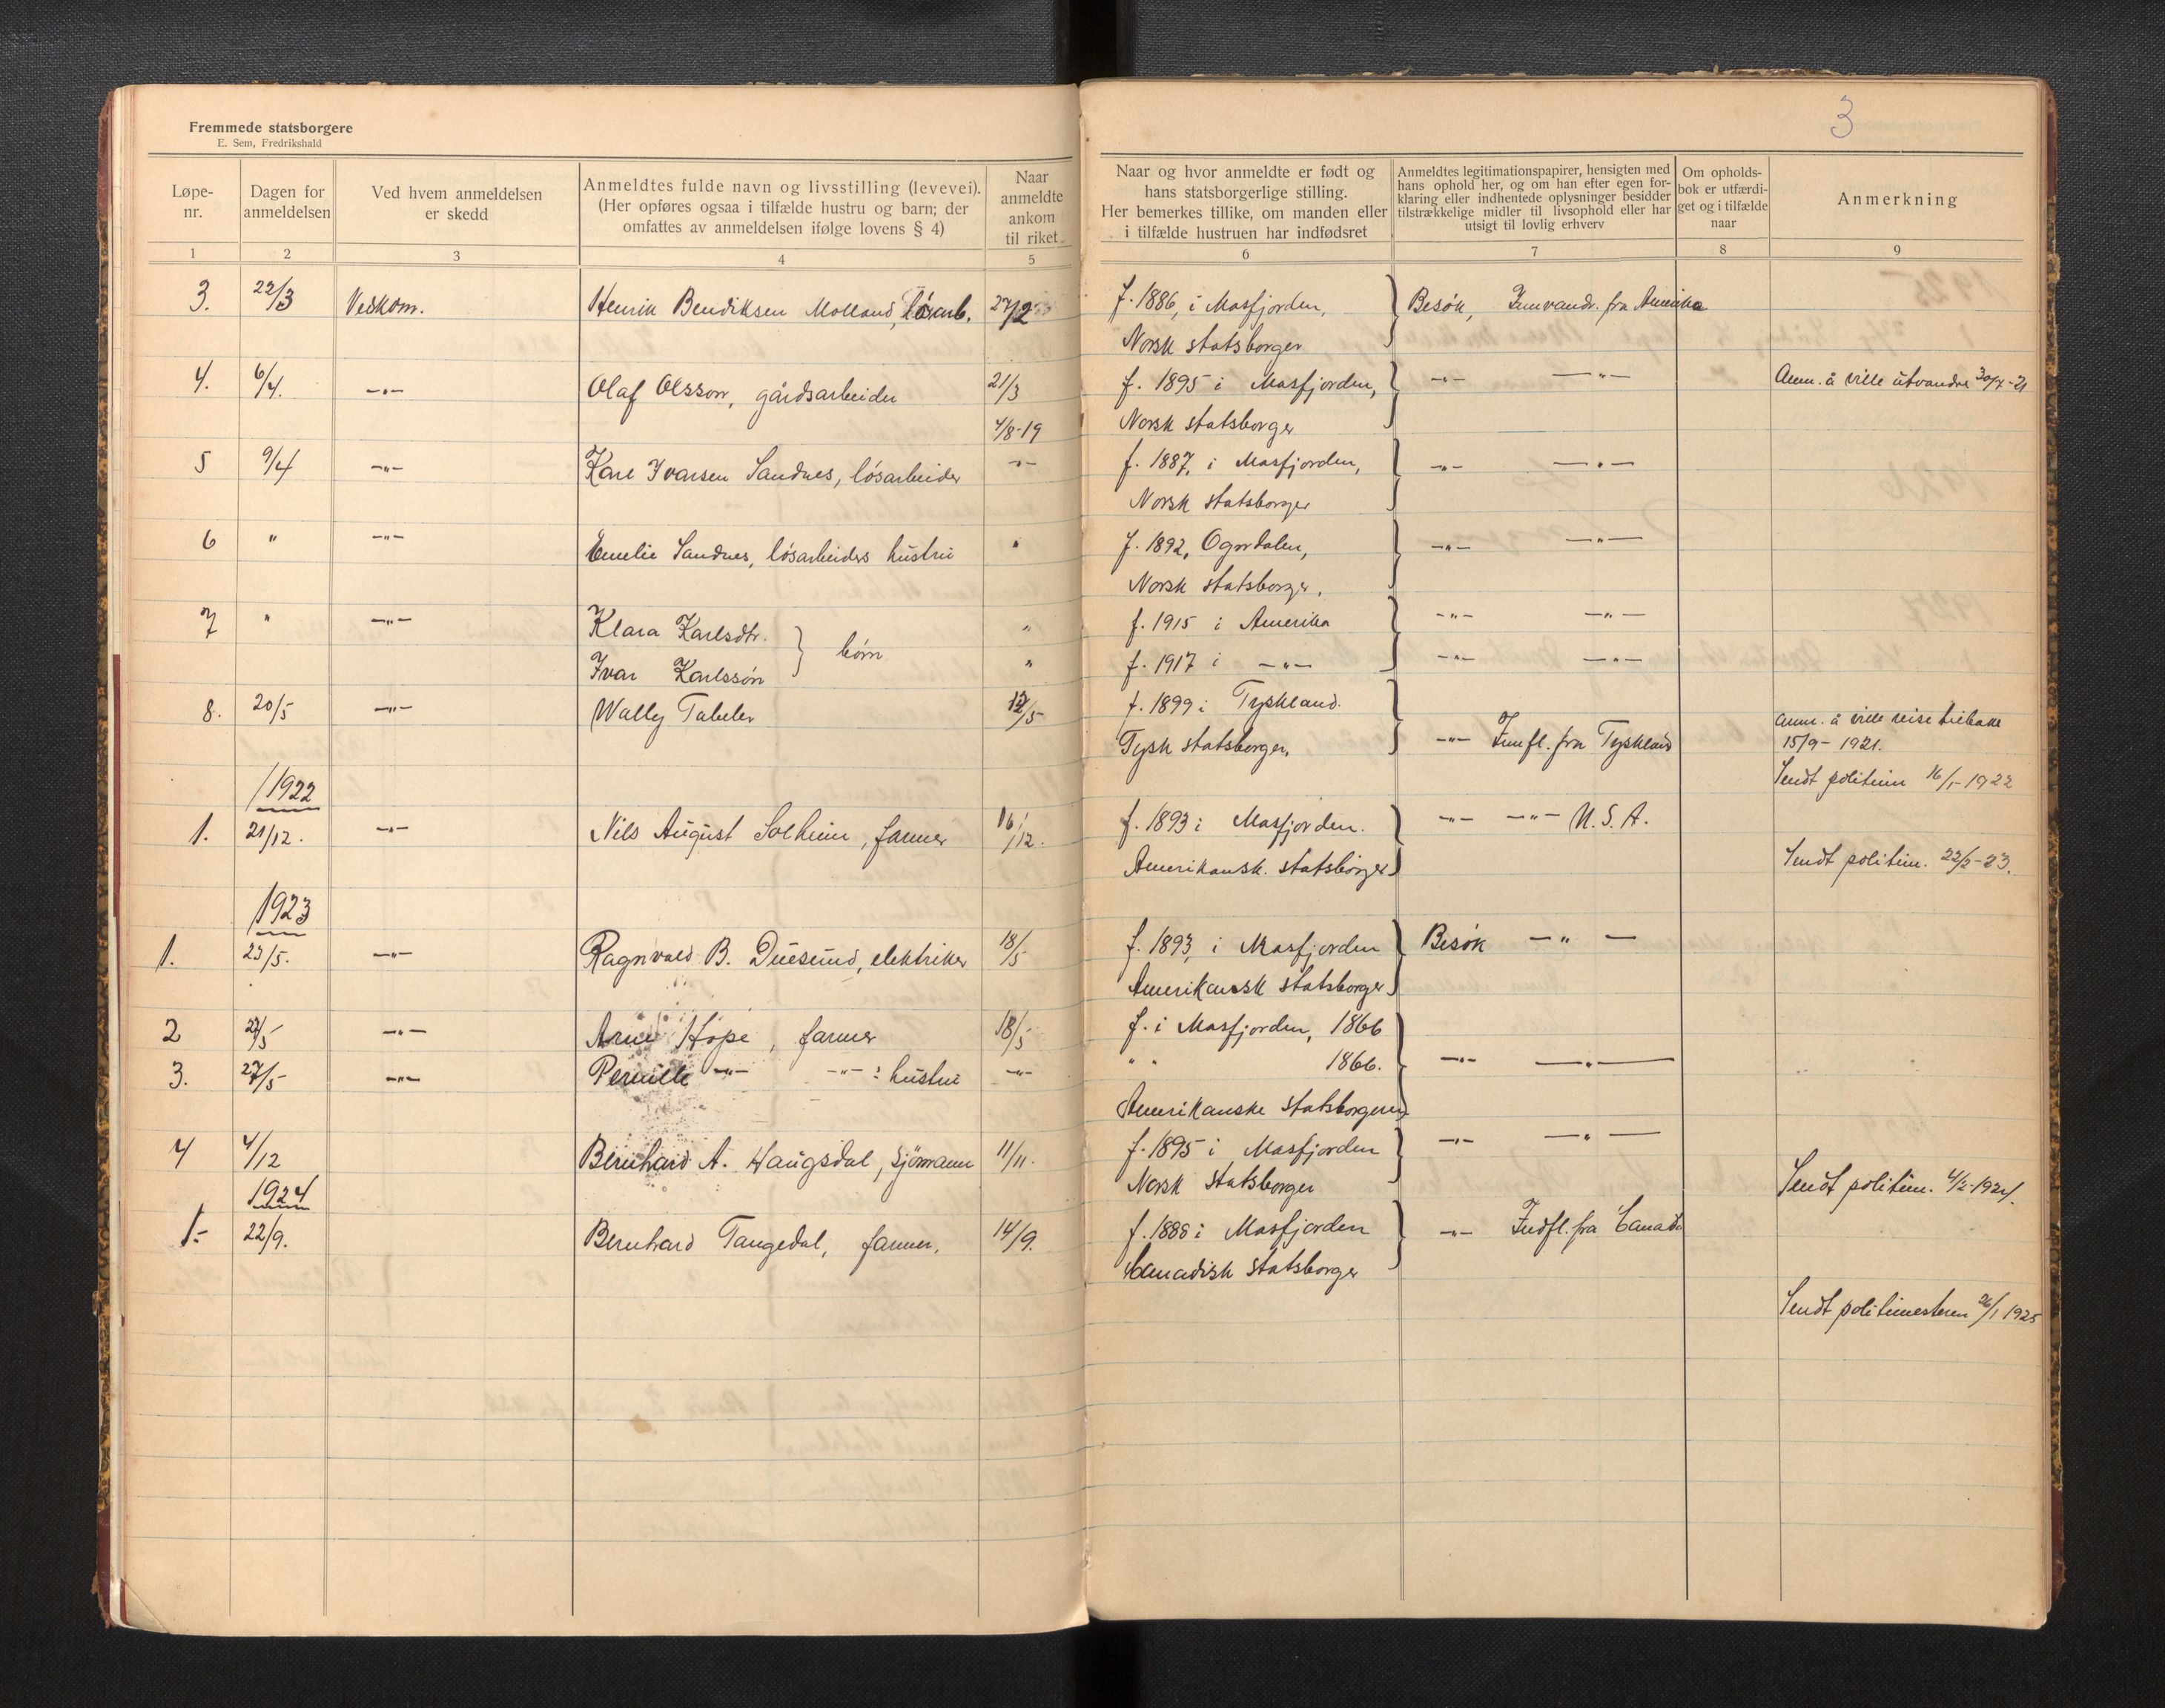 Fremmede statsborgere
E. Sem, Fredrikshald
Løpe-nr.
Dagen for anmeldelsen
Ved hvem anmeldelsen er skedd
Anmeldtes fulde navn og livsstilling (levevei).
(Her opføres ogsaa i tilfælde hustru og barn; der omfattes av anmeldelsen ifølge lovens § 4)
Naar anmeldte ankom til riket
1 2 3 4 5
3. 22/3 Vedkom. Henrik Bendiksen Molland, løsarb. 27/2
4. 6/4. -"- Olaf Olsson, gårdsarbeider 21/3
4/8-19
5 9/4 -"- Karl Ivarsen Sandnes, løsarbeider -"-
6 " -"- Emelie Sandnes, løsarbeiders hustru "
7 " -"- Klara Karlsdtr. } børn "
Ivar Karlssøn "
8. 20/5 -"- Wally Tabeler 12/5
1922
1. 21/12. -"- Nils August Solheim, farmer 16/12.
1923
1. 23/5. -"- Ragnvald B. Duesund, elektriker 18/5
2 27/5 -"- Arne Hope, farmer 18/5
3. 27/5 -"- Pernille -"- -"-: hustru -"-
4 4/12 Bernhard A. Haugsdal, sjømann 11/11.
1924
1.- 22/9. Bernhard Tangedal, farmer, 14/9.
3
Naar og hvor anmeldte er født og hans statsborgerlige stilling.
Her bemerkes tillike, om manden eller i tilfælde hustruen har indfødsret
Anmeldtes legitimationspapirer, hensigten med hans ophold her, og om han efter egen forklaring eller indhentede oplysninger besidder tilstrækkelige midler til livsophold eller har utsigt til lovlig erhverv
Om opholds-bok er utfærdi-get og i tilfælde naar
Anmerkning
6 7 8 9
f. 1886, i Masfjorden, } Besøk, Innvandr. fra Amerika
Norsk statsborger
f. 1895 i Masfjorden, } -"- -"- Anm. å ville utvandre 30/7-21
Norsk statsborger
f. 1887, i Masfjorden, } -"- -"-
Norsk statsborger
f. 1892, Ogndalen, } -"- -"-
Norsk statsborger.
f. 1915 i Amerika } -"- -"-
f. 1917 i -"- -"- -"-
f. 1899 i Tyskland. }
Tysk statsborger. -"- Innfl. fra Tyskland
anm. å ville reise tilbake
15/9 - 1921.
Sendt politim 16/1-1922
f. 1893 i Masfjorden. } -"- -"- U.S.A.
Amerikansk. statsborger
Sendt politim. 22/2-23.
f. 1893, i Masfjorden } Besøk -"-
Amerikansk statsborger
f. i Masfjorden, 1866
" " 1866. } -"- -"-
Amerikanske statsborgere
f. 1895 i Masfjorden } -"- -"-
Norsk statsborger
Sendt politim. 4/2-1924.
f. 1888 i Masfjorden } -"- Indfl. fra Canada
Canadisk statsborger
Sendt politimesteren 26/1 1925